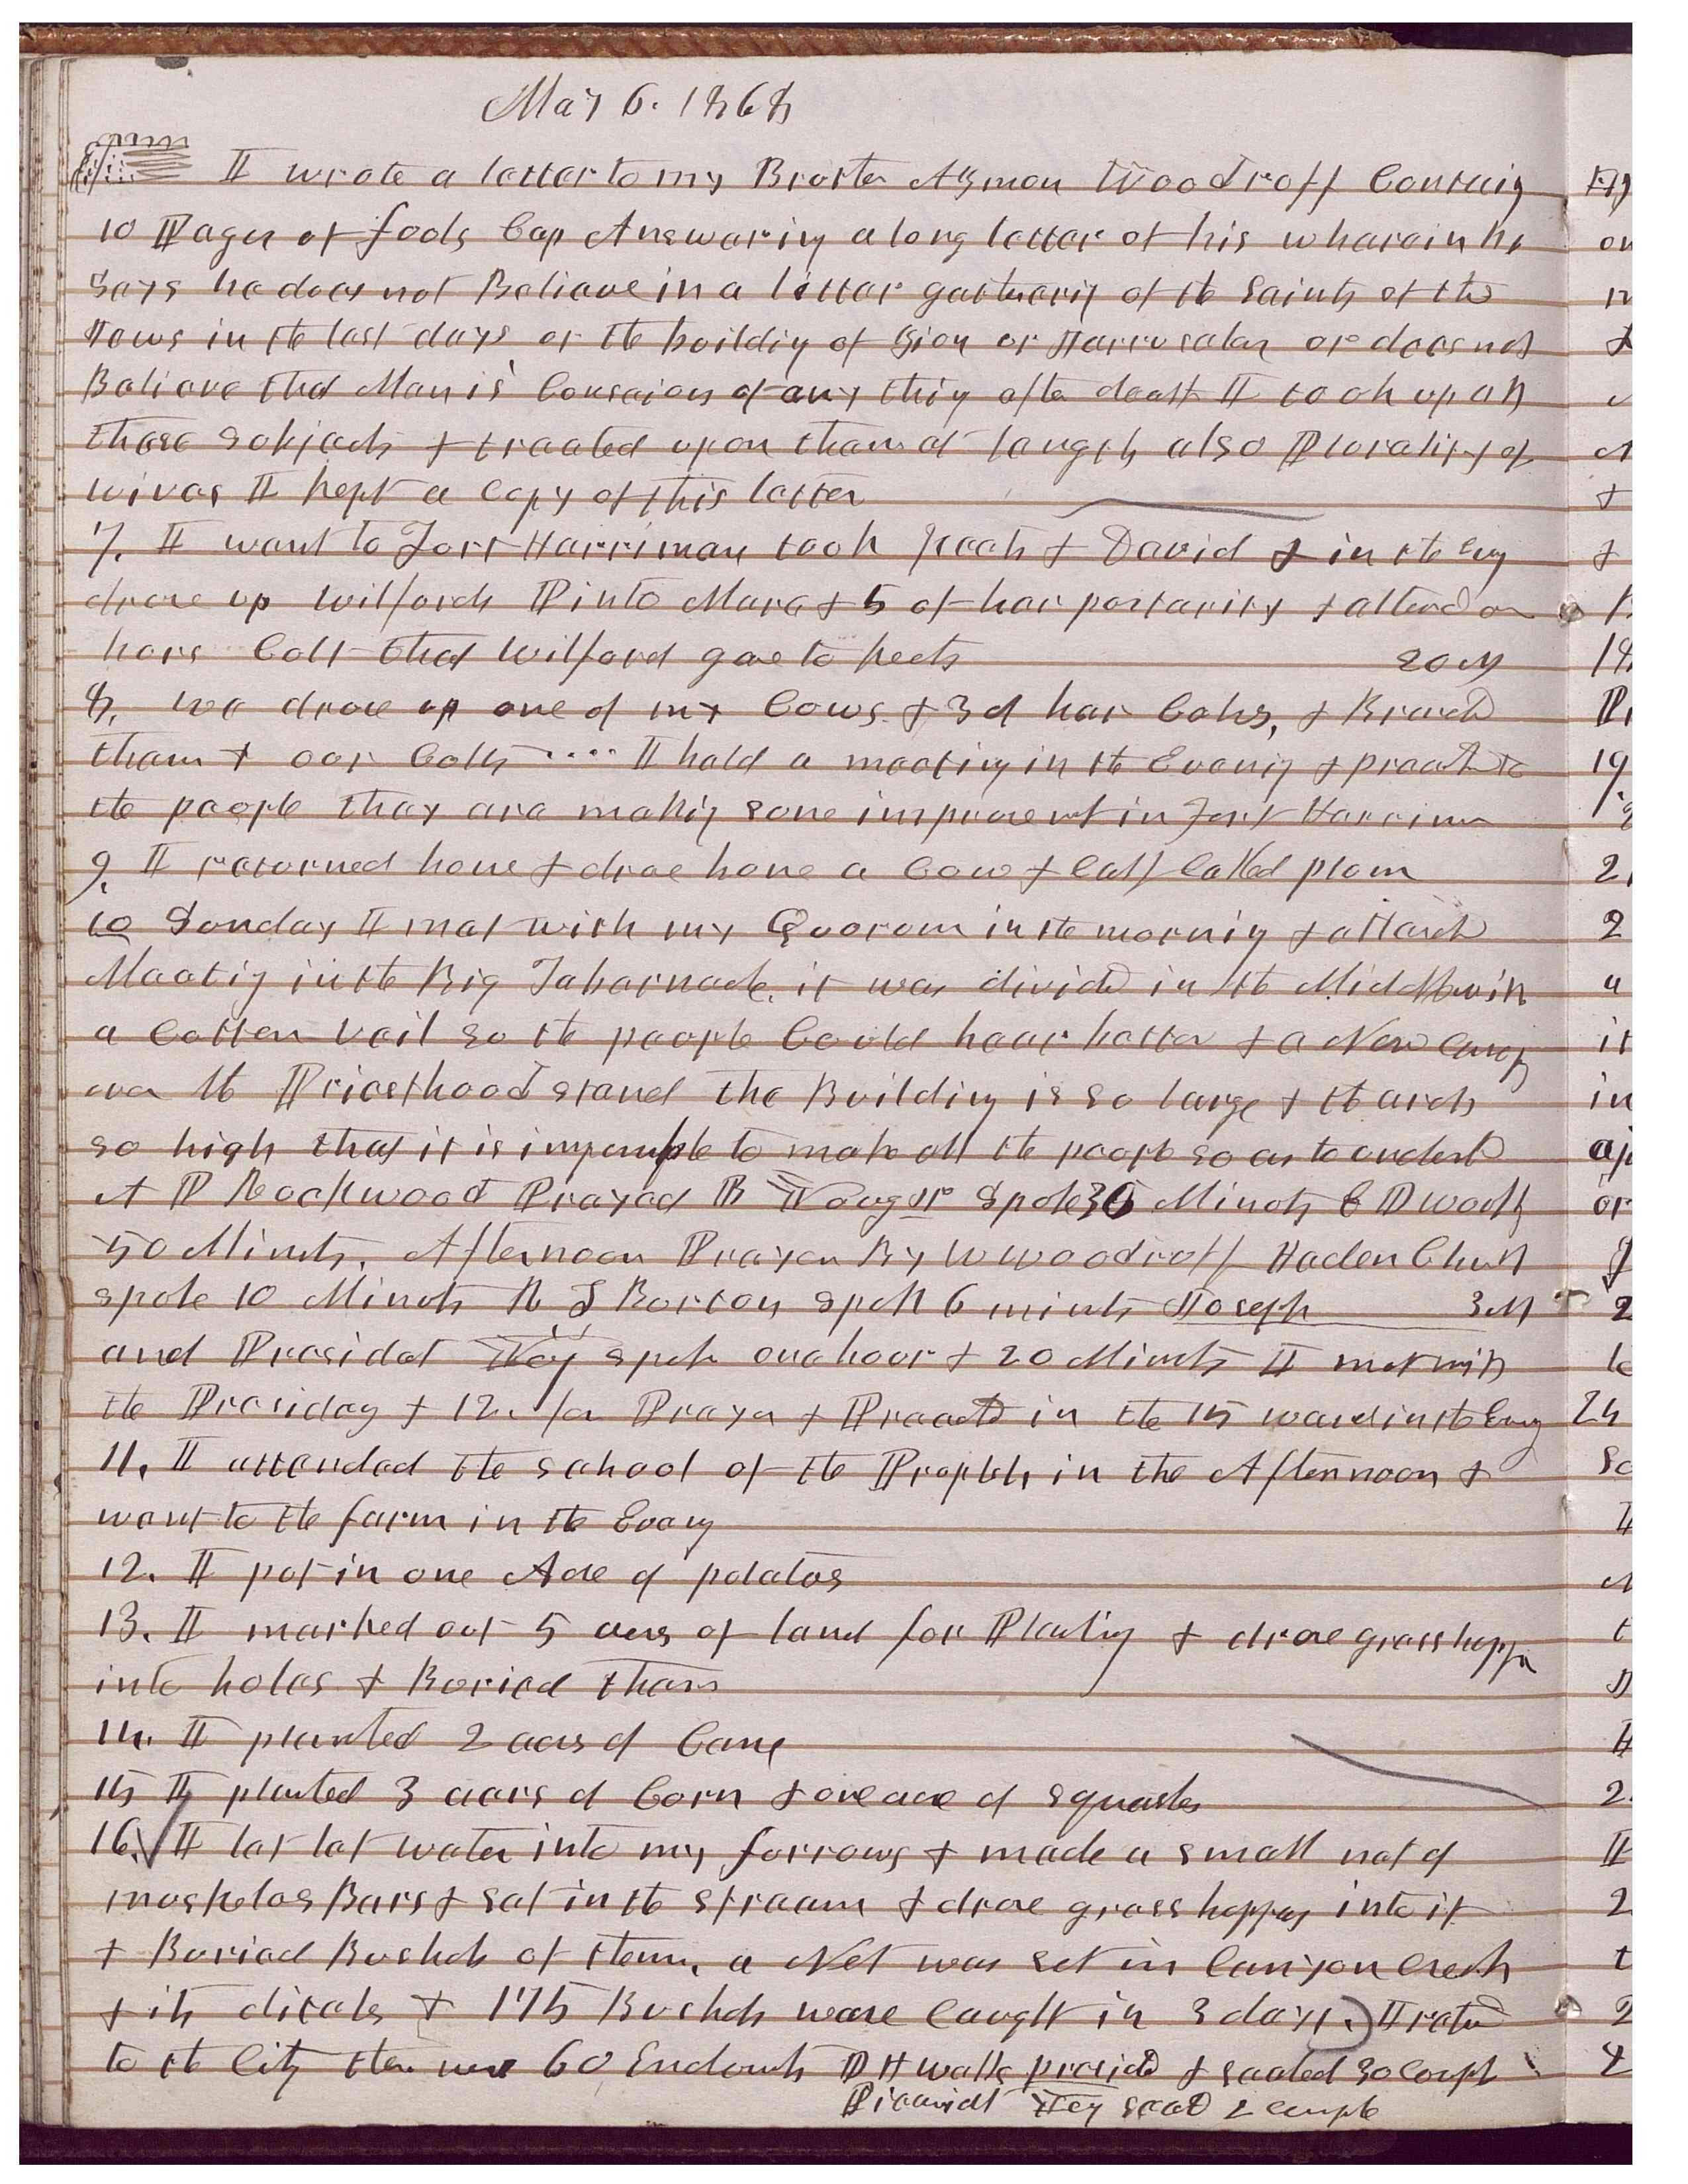 May 6. 1868
I wrote a letter to my Broter Azmon Woodruff Containg
10 Pages of fools Cap Answering a long letter of his wherein he
Says he does not Believe in a litter gatherig of the Saints or the
Jews in the last days or the buildig of Zion or Jerrusalem or does not
Believe that Man is Conscious of any thig after death I took up all
these subjects & treated upon them at length also Plurality of
wives I kept a Copy of this letter
7. I went to Fort Harriman took & David & in the Eveg
drove up Wilfords Pinto Mare & 5 of her postarity & alterd on
hors Colt that Wilford gave to 20 M
8. We drove up one of my Cows & 3 of her Calvs, & Brand
them & our Colts .... I held a meeting in the Evenig & preachd to
the people they are makig some improvemt in Fort Harrimn
9. I returned home & drove home a Cow & Calf Called plum
10 Sunday I met with my Quorum in the mornig & attend
Meetig in the Big Tabernacle. it was divided in the Middle with
a Cotten vail so the people Could hear better & a New
over the Priesthood stand The Building is so large & the arch
so high that it is imposible to make all the people so as to underst
A P Rockwood Prayed B Young jr Spoke 36 Minuts E D Wooly
50 Minuts. Afternoon Prayer By W Woodruff Haden Church
spoke 10 Minuts R T Burton spok 6 minuts Joseph 3 M
and Presidet Yg spok one hour & 20 Minuts I met with
the Presidey & 12. for Prayer & Preachd in the 15 ward in the Eveg
11. I attended the School of the Prophets in the Afternoon &
went to the farm in the Eveng
12. I put in one Acre of potatos
13. I marked out 5 acrs of land for Plantig & drove grasshoppr
into holes & Buried them
14. I planted 2 acrs of Cane
15 I planted 3 acors of Corn & one acre of Squashes
16. I let let water into my furrows & made a small net of
musketoes Bars & set in the stream & drove grass hoppers into it
& Buried Bushels of them. a Net was set in Canyon Creek
& its ditches & 175 Bushels ware Caught in 3 days. I returd
to the City ther were 60 Endowmts D H Wells presided & sealed 30 Coupls
Presidt Yg seald 2 Coupls